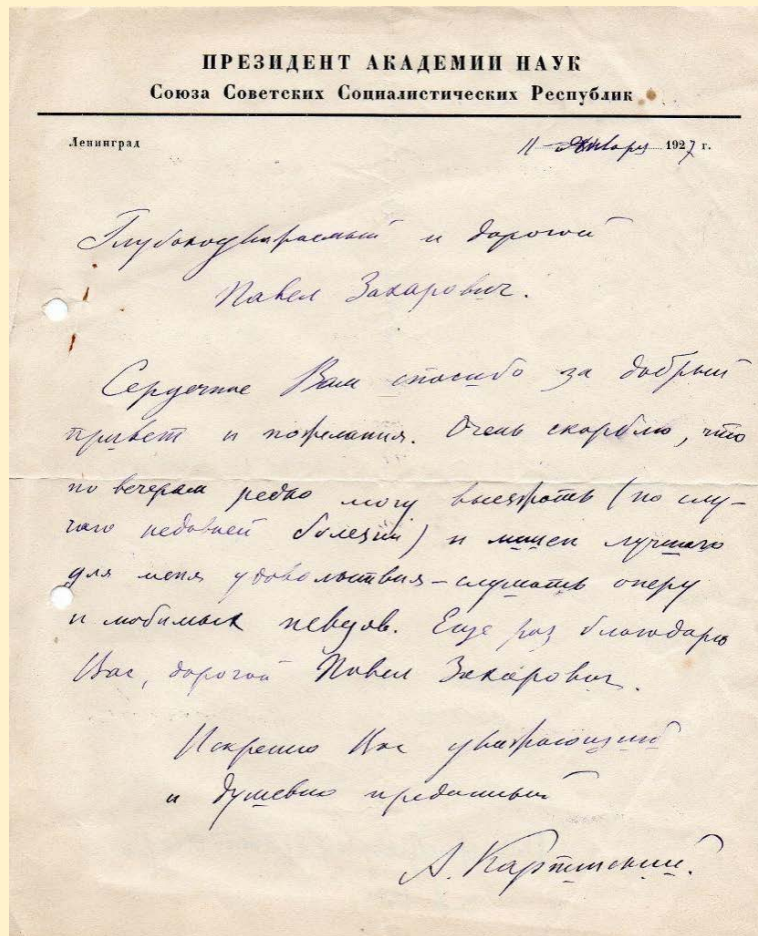 ПРЕЗИДЕНТ АКАДЕМИИ НАУК
Союза Советских Социалистических Республик
Ленинград
11 января 1927 г.
Глубокоуважаемый и дорогой
Павел Захарович.
Сердечное Вам спасибо за добрый
привет и пожелания. Очень скорблю, что
по вечерам редко могу выезжать (по слу-
чаю недавней болезни) и лишен лучшего
для меня удовольствия – слушать оперу
и любимых певцов. Еще раз благодарю
Вас, дорогой Павел Захарович.
Искренно Вас уважающий
и душевно преданный
А. Карпинский.